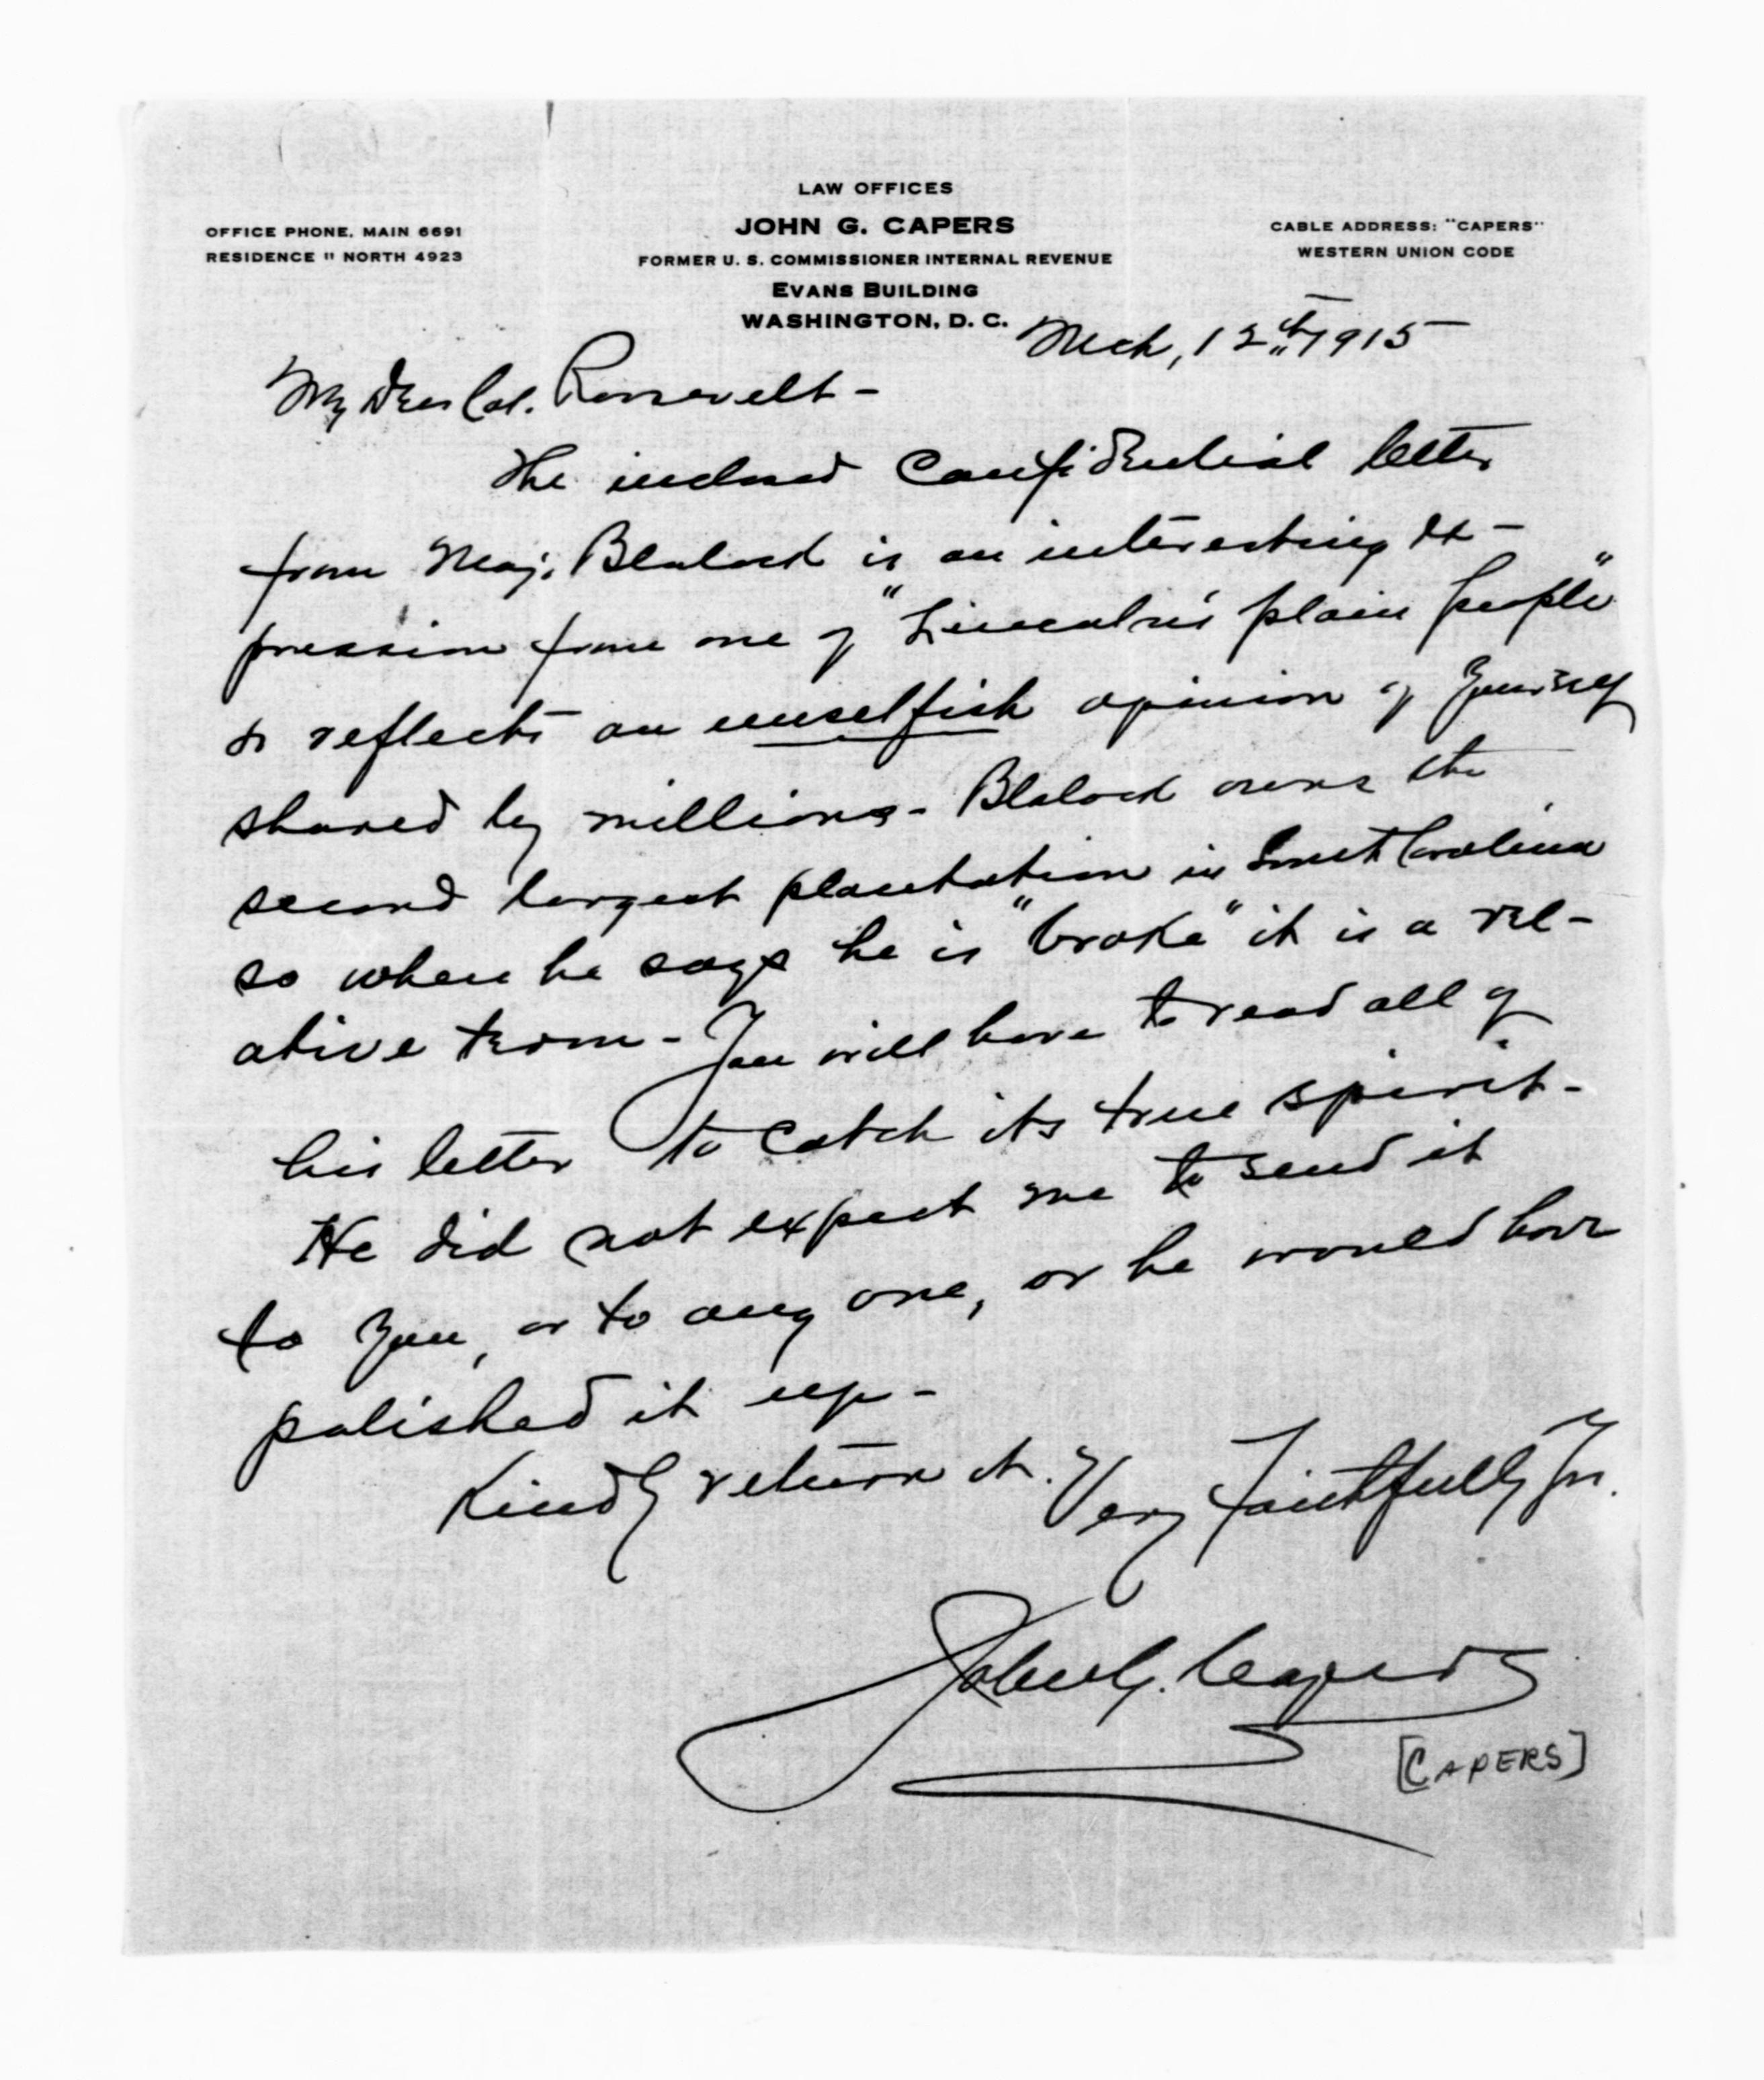 LAW OFFICES
JOHN G. CAPERS
FORMER U. S. COMMISSIONER INTERNAL REVENUE
EVANS BUILDING
WASHINGTON, D. C.
OFFICE PHONE, MAIN 6691
RESIDENCE " NORTH 4923
CABLE ADDRESS: "CAPERS"
WESTERN UNION CODE
Mch, 12th 1915
My Dear Col. Roosevelt -
The inclosed Confidential letter
from Maj. Blalock is an interesting ex-
pression from one of "Lincoln's plain people"
& reflects an unselfish opinion of Yourself
shared by millions - Blalock owns the
second largest plantation in South Carolina
so when he says he is "broke" it is a rel-
ative term - You will have to read all of
his letter to catch its true spirit -
He did not expect me to send it
to You, or to any one, or he would have
polished it up -
Kindly return it. Very Faithfully Yrs.
John G. Capers
[CAPERS]